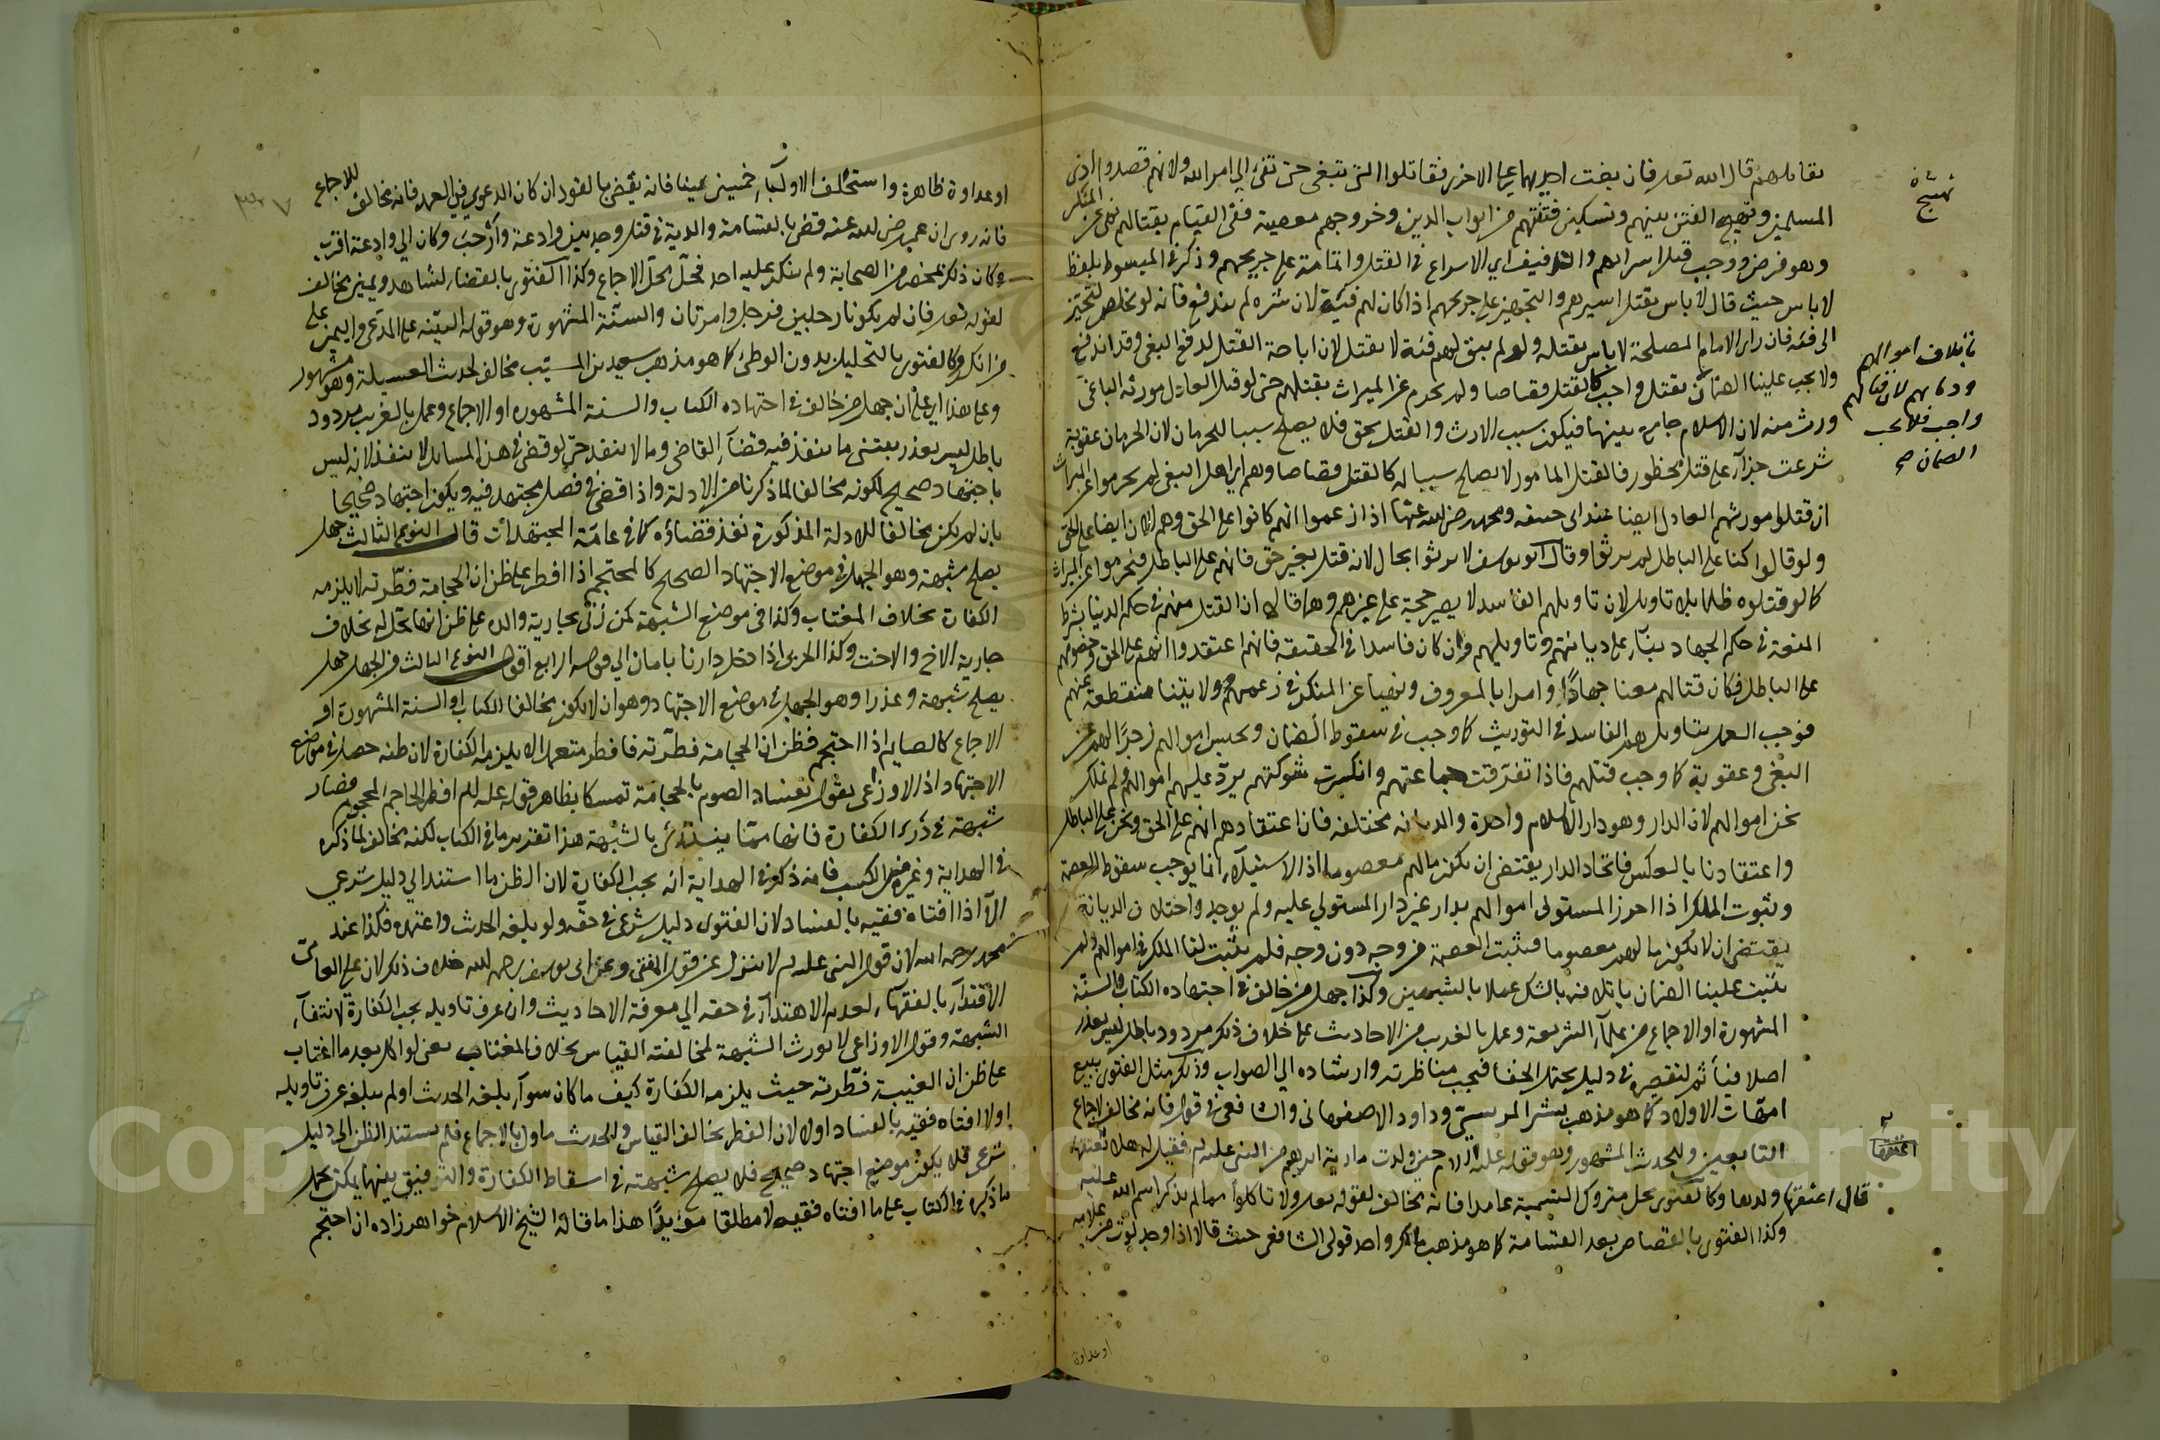 نقاتلهم قال الله تعالى فان بغت احديهما على الاخرى فقاتلوا التى تبغى حتى تفئ الى امر الله ولانهم قصدوا اذى
المسلمين وتهييج الفتن بينهم وتسكين فتنتهم من ابواب الدين وخروجهم معصية ففى القيام بقتالهم نهى عن المنكر
وهو فرض ووجب قتل اسرائهم والتذفيف اى الاسراع فى القتل واتمامه على جريحهم وذكر فى المبسوط بلفظ
لا باس حيث قال لا باس بقتل اسيرهم والتجهيز على جريحهم اذا كان لهم فئة لان شره لم يندفع فانه لو تخلص لتحيز
الى فئة فان راى الامام المصلحة لا باس بقتله ولو لم يبق لهم فئة لا يقتل لان اباحة القتل لدفع البغى وقد اندفع
ولا يجب علينا الضمان بقتل واجب كالقتل قصاصا ولم يحرم عن الميراث بقتلهم حتى لو قتل العادل مورثه الباغى
ورث منه لان الاسلام جامع بينهما فيكون سبب الارث والقتل بحق فلا يصلح سببا للحرمان لان الحرمان عقوبة
شرعت جزاء على قتل محظور فالقتل المامور لا يصلح سببا له كالقتل قصاصا وهم اى اهل البغى لم يحرموا عن الميراث
ان قتلوا مورثهم العادل ايضا عند ابى حنيفة ومحمد رضى الله عنهما اذا زعموا انهم كانوا على الحق وهم الان ايضا على الحق
ولو قالوا كنا على الباطل لم يرثوا وقال ابو يوسف لا يرثوا بحال لانه قتل بغير حق فانهم على الباطل فيحرموا عن الميراث
كما لو قتلوه ظلما بلا تاويل لان تاويلهم الفاسد لا يصير حجة على غيرهم وهما قالا ان القتل منهم فى حكم الدنيا بشرط
المنعة فى حكم الجهاد بناء على ديانتهم وتاويلهم وان كان فاسدا فى الحقيقة فانهم اعتقدوا انهم على الحق وخصومهم
على الباطل فكان قتالهم معنا جهادا وامرا بالمعروف ونهيا عن المنكر فى زعمهم وولايتنا منقطعة عنهم
فوجب العمل بتاويلهم الفاسد فى التوريث كما وجب فى سقوط الضمان وتحبس اموالهم زجرا لهم عن
البغى وعقوبة كما وجب قتلهم فاذا تفرقت جماعتهم وانكسرت شوكتهم يرد عليهم اموالهم ولم نملك
نحن اموالهم لان الدار وهو دار الاسلام واحدة والديانة مختلفة فان اعتقادهم انهم على الحق ونحن على الباطل
واعتقادنا بالعكس فاتحاد الدار يقتضى ان يكون مالهم معصوما اذ الاستيلاء انما يوجب سقوط العصمة
وثبوت الملك اذا احرز المستولى اموالهم بدار غير دار المستولى عليه ولم يوجد واختلاف الديانة
يقتضى ان لا يكون مالهم معصوما فيثبت العصمة من وجه دون وجه فلم يثبت لنا الملك فى اموالهم ولم
يثبت علينا الضمان باتلافه بالشك عملا بالشبهين وكذا جهل من خالف فى اجتهاده الكتاب والسنة
المشهورة او الاجماع من علماء الشريعة وعمل بالغريب من الاحاديث على خلاف ذلك مردود باطل ليس بعذر
اصلا فيأثم لتقصيره فى دليل يحتمل الخفاء فيجب مناظرته وارشاده الى الصواب وذلك مثل الفتوى ببيع
امهات الاولاد كما هو مذهب بشر المريسى وداود الاصفهانى والشافعى فى قول فانه مخالف لاجماع
التابعين وللحديث المشهور وهو قوله عليه السلام حين ولدت مارية ابراهيم من النبى عليه السلام فقيل له هلا تعتقها
قال اعتقها ولدها وكالفتوى بحل متروك التسمية عامدا فانه مخالف لقوله تعالى ولا تاكلوا مما لم يذكر اسم الله عليه
وكذا الفتوى بالقصاص بعد القسامة كما هو مذهب مالك واحد قولى الشافعى حيث قالا اذا وجد لوث من علامة
تهييج
باتلاف اموالهم
ودمائهم لان قتالهم
واجب فلا يجب
الضمان صح
اعتقها
او عداوة
او عداوة ظاهرة واستحلف الاولياء خمسين يمينا فانه يقضى بالقود ان كان الدعوى فى العمد فانه مخالف للاجماع
فانه روى ان عمر رضى الله عنه قضى بالقسامة والدية فى قتل وجد بين وادعة وارحب وكان الى وادعة اقرب
وكان ذلك بمحضر من الصحابة ولم ينكر عليه احد فحل محل الاجماع وكذا الفتوى بالقضاء لشاهد ويمين مخالف
لقوله تعالى فان لم يكونا رجلين فرجل وامرتان والسنة المشهورة وهو قوله البينة على المدعى واليمين على
من انكر وكالفتوى بالتحليل بدون الوطئ كما هو مذهب سعيد بن المسيب مخالف لحديث العسيلة وهو مشهور
وعلى هذا اى على ان جهل من خالف فى اجتهاده الكتاب والسنة المشهورة او الاجماع وعمل بالغريب مردود
باطل ليس بعذر يبتنى ما ينفذ فيه قضاء القاضى وما لا ينفذ حتى لو قضى فى هذا المسائل لا ينفذ لانه ليس
باجتهاد صحيح لكونه مخالفا لما ذكرنا من الادلة واذا قضى فى فصل مجتهد فيه ويكون اجتهاد صحيحا
بان لم يكن مخالفا للادلة المذكورة نفذ قضاؤه كما فى عامة المجتهدات قال النوع الثالث جهل
يصلح شبهة وهو الجهل فى موضع الاجتهاد الصحيح كالمحتجم اذا افطر على ظن ان الحجامة فطرته لا يلزمه
الكفارة بخلاف المغتاب وكذا فى موضع الشبهة كمن زنى بجارية والده على ظن انها تحل له بخلاف
جارية الاخ والاخت وكذا الحربى اذا دخل دارنا بامان الى قوله الرابع اقول النوع الثالث من الجهل جهل
يصلح شبهة وعذرا وهو الجهل فى موضع الاجتهاد وهو ان لا يكون مخالفا الكتاب او السنة المشهورة او
الاجماع كالصايم اذا احتجم فظن ان الحجامة فطرته فافطر متعمدا لا يلزمه الكفارة لان ظنه حصل فى موضع
الاجتهاد اذ الاوزاعى يقول بفساد الصوم بالحجامة تمسكا بظاهر قوله عليه السلام افطر الحاجم المحجوم فصار
شبهة فى درء الكفارة فانها مما يندرئ بالشبهة هذا تقدير ما فى الكتاب لكنه مخالف لما ذكره
فى الهداية وغيره من الكتب فانه ذكر فى الهداية انه يجب الكفارة لان الظن ما استند الى دليل شرعى
الا اذا افتاه فقيه بالفساد لان الفتوى دليل شرعى فى حقه ولو بلغه الحديث واعتمده فكذا عند
محمد رحمه الله لان قول النبى عليه السلام لا ينزل عن قول المفتى وعن ابى يوسف رحمه الله خلاف ذلك لان على العامى
الاقتداء بالفقهاء لعدم الاهتداء فى حقه الى معرفة الاحاديث وان عرف تاويله يجب الكفارة لانتفاء
الشبهة وقول الاوزاعى لا يورث الشبهة لمخالفته القياس بخلاف المغتاب يعنى لو اكل بعد ما اغتاب
على ظن ان الغيبة فطرته حيث يلزمه الكفارة كيف ما كان سواء بلغه الحديث او لم يبلغه عرف تاويله
او لا افتاه فقيه بالفساد او لا لان الفطر مخالف القياس والحديث ماول بالاجماع فلم يستند الظن الى دليل
شرعى فلا يكون موضع اجتهاد صحيح فلا يصلح شبهته فى اسقاط الكفارة والتوفيق بينهما يمكن بحمل
ما ذكره فى الكتاب على ما افتاه فقيه لا مطلقا مؤيدا هذا ما قاله الشيخ الاسلام خواهر زاده ان احتجم